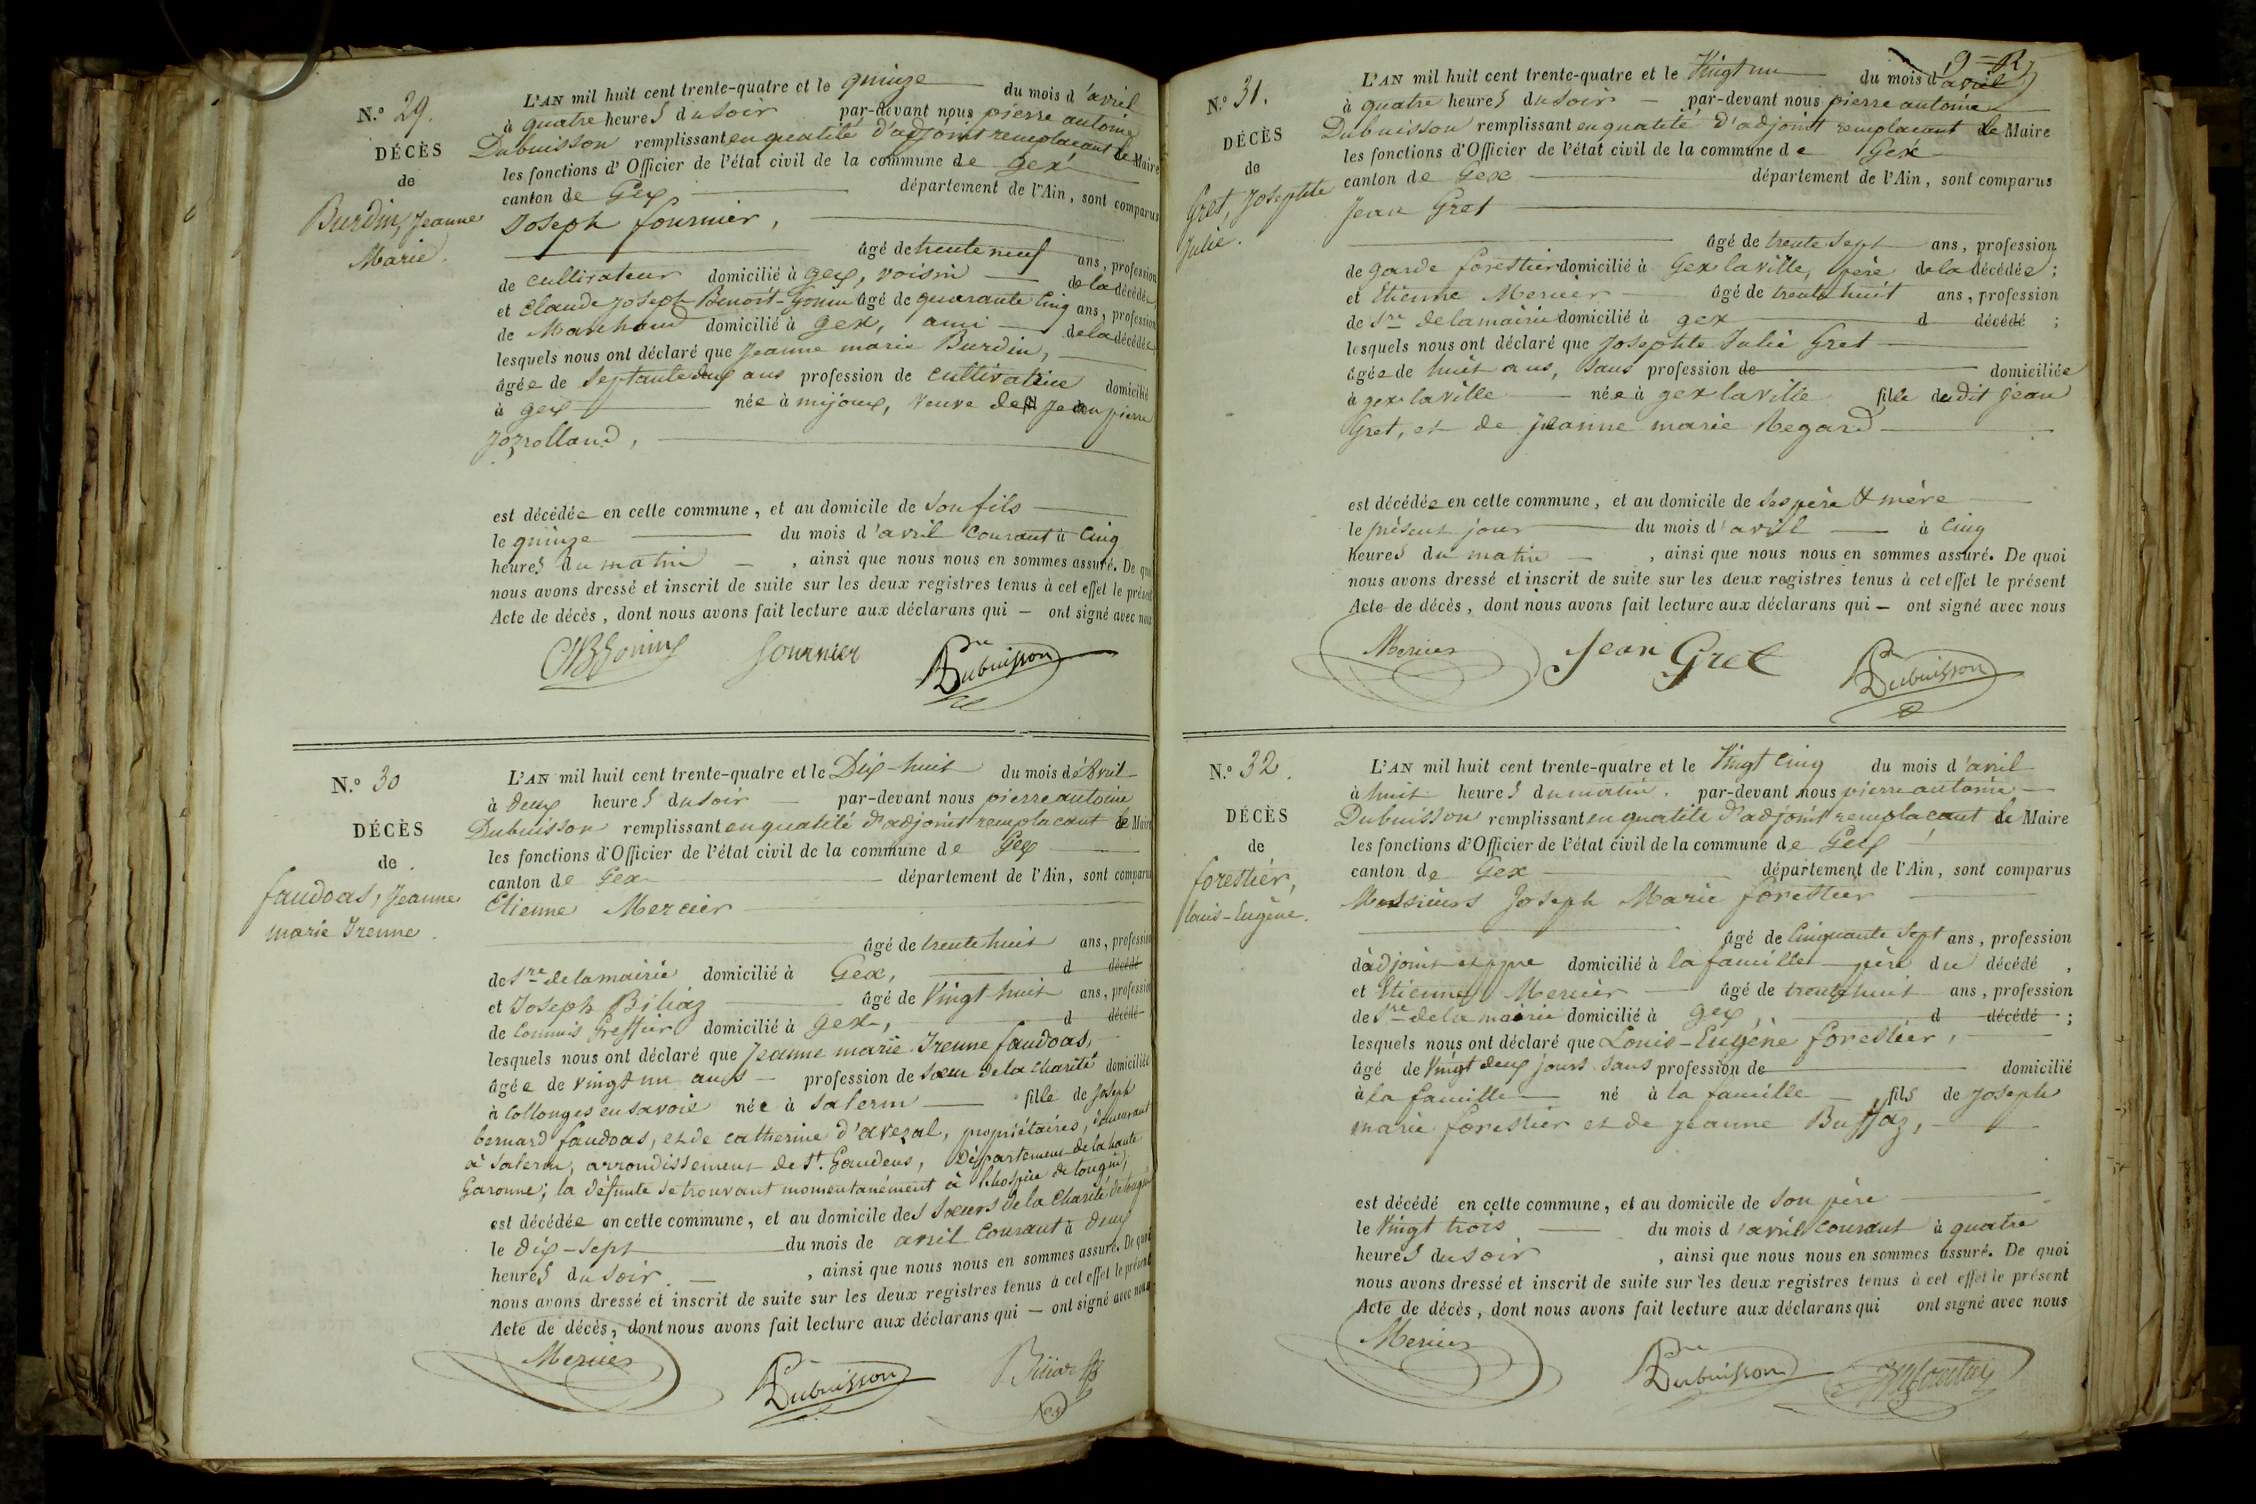 N.o 29.
DÉCÈS
de
Burdin, Jeanne
Marie.
L'AN mil huit cent trente-quatre et le quinze du mois d'avril
à quatre heures du soir par-devant nous pierre antoine
Dubuisson remplissant en qualité d'adjoint remplacant le Maire
les fonctions d'Officier de l'état civil de la commune de gex
canton de Gex département de l'Ain, sont comparus
Joseph fournier,
âgé de trente neuf ans, profession
de cultivateur domicilié à gex, voisin de la décédée,
et Claude Joseph Benoit-Gonin âgé de quarante cinq ans, profession
de Marchand domicilié à gex, ami de la décédée
lesquels nous ont déclaré que Jeanne marie Burdin,
âgée de septante deux ans profession de cultivatrice domicilié
à gex née à mijoux, veuve de Jean pierre
Jozrolland,
est décédée en cette commune, et au domicile de son fils
le quinze du mois d'avril courant à cinq
heures du matin, ainsi que nous nous en sommes assuré. De quoi
nous avons dressé et inscrit de suite sur les deux registres tenus à cet effet le présent
Acte de décès, dont nous avons fait lecture aux déclarans qui — ont signé avec nous
fournier Dubuisson
N.o 30
DÉCÈS
de
faudoas, Jeanne
marie Irenne.
L'AN mil huit cent trente-quatre et le Dix-huit du mois d'Avril
à deux heures du soir par-devant nous pierre antoine
Dubuisson remplissant en qualité d'adjoint remplacant le Maire
les fonctions d'Officier de l'état civil de la commune de Gex
canton de Gex département de l'Ain, sont comparus
Etienne Mercier
âgé de trente huit ans, profession
de sre de la mairie domicilié à Gex, d décédé
et Joseph Biliaz âgé de vingt-huit ans, profession
de commis Greffier domicilié à gex, d décédé
lesquels nous ont déclaré que Jeanne marie Irenne faudoas,
âgée de vingt un ans — profession de sœur de la charité domiciliée
à Collonges en savoie née à salerm fille de Joseph
bernard faudoas, et de catherine d'avezal, propriétaires, demeurant
à salerm, arrondissement de St. Gaudens, Département de la haute
Garonne; la défunte se trouvant momentanément à l'hospice de tougin,
est décédée en cette commune, et au domicile des sœurs de la charité de tougin
le dix-sept du mois de avril courant à deux
heures du soir, ainsi que nous nous en sommes assuré. De quoi
nous avons dressé et inscrit de suite sur les deux registres tenus à cet effet le présent
Acte de décès, dont nous avons fait lecture aux déclarans qui — ont signé avec nous
Mercier Dubuisson
N.o 31.
DÉCÈS
de
Gret, Josephte
Julie.
L'AN mil huit cent trente-quatre et le Vingt un du mois d'avril
à quatre heures du soir — par-devant nous pierre antoine
Dubuisson remplissant en qualité d'adjoint remplacant le Maire
les fonctions d'Officier de l'état civil de la commune de Gex
canton de Gex département de l'Ain, sont comparus
Jean Gret
âgé de trente sept ans, profession
de garde forestier domicilié à Gex la ville, père de la décédée;
et Etienne Mercier âgé de trente huit ans, profession
de sre de la mairie domicilié à gex d décédé;
lesquels nous ont déclaré que Josephte Julie Gret
âgée de huit ans, sans profession de domiciliée
à gex la ville née à gex la ville fille du dit Jean
Gret, et de jeanne marie Regard
est décédée en cette commune, et au domicile de ses père & mère
le présent jour du mois d'avril à cinq
heures du matin, ainsi que nous nous en sommes assuré. De quoi
nous avons dressé et inscrit de suite sur les deux registres tenus à cet effet le présent
Acte de décès, dont nous avons fait lecture aux déclarans qui — ont signé avec nous
Mercier Jean Gret Dubuisson
N.o 32.
DÉCÈS
de
forestier,
Louis-Eugène.
L'AN mil huit cent trente-quatre et le Vingt cinq du mois d'avril
à huit heures du matin. par-devant nous pierre antoine
Dubuisson remplissant en qualité d'adjoint remplacant le Maire
les fonctions d'Officier de l'état civil de la commune de Gex
canton de Gex département de l'Ain, sont comparus
Messieurs Joseph Marie forestier
âgé de cinquante sept ans, profession
d'adjoint domicilié à la faucille père du décédé,
et Etienne Mercier âgé de trente huit ans, profession
de sre de la mairie domicilié à gex, d décédé;
lesquels nous ont déclaré que Louis-Eugène forestier,
âgé de Vingt deux jours sans profession de domicilié
à la faucille né à la faucille fils de Joseph
marie forestier et de jeanne Buffaz,
est décédé en cette commune, et au domicile de son père
le Vingt trois du mois d'avril courant à quatre
heures du soir, ainsi que nous nous en sommes assuré. De quoi
nous avons dressé et inscrit de suite sur les deux registres tenus à cet effet le présent
Acte de décès, dont nous avons fait lecture aux déclarans qui ont signé avec nous
Mercier Dubuisson